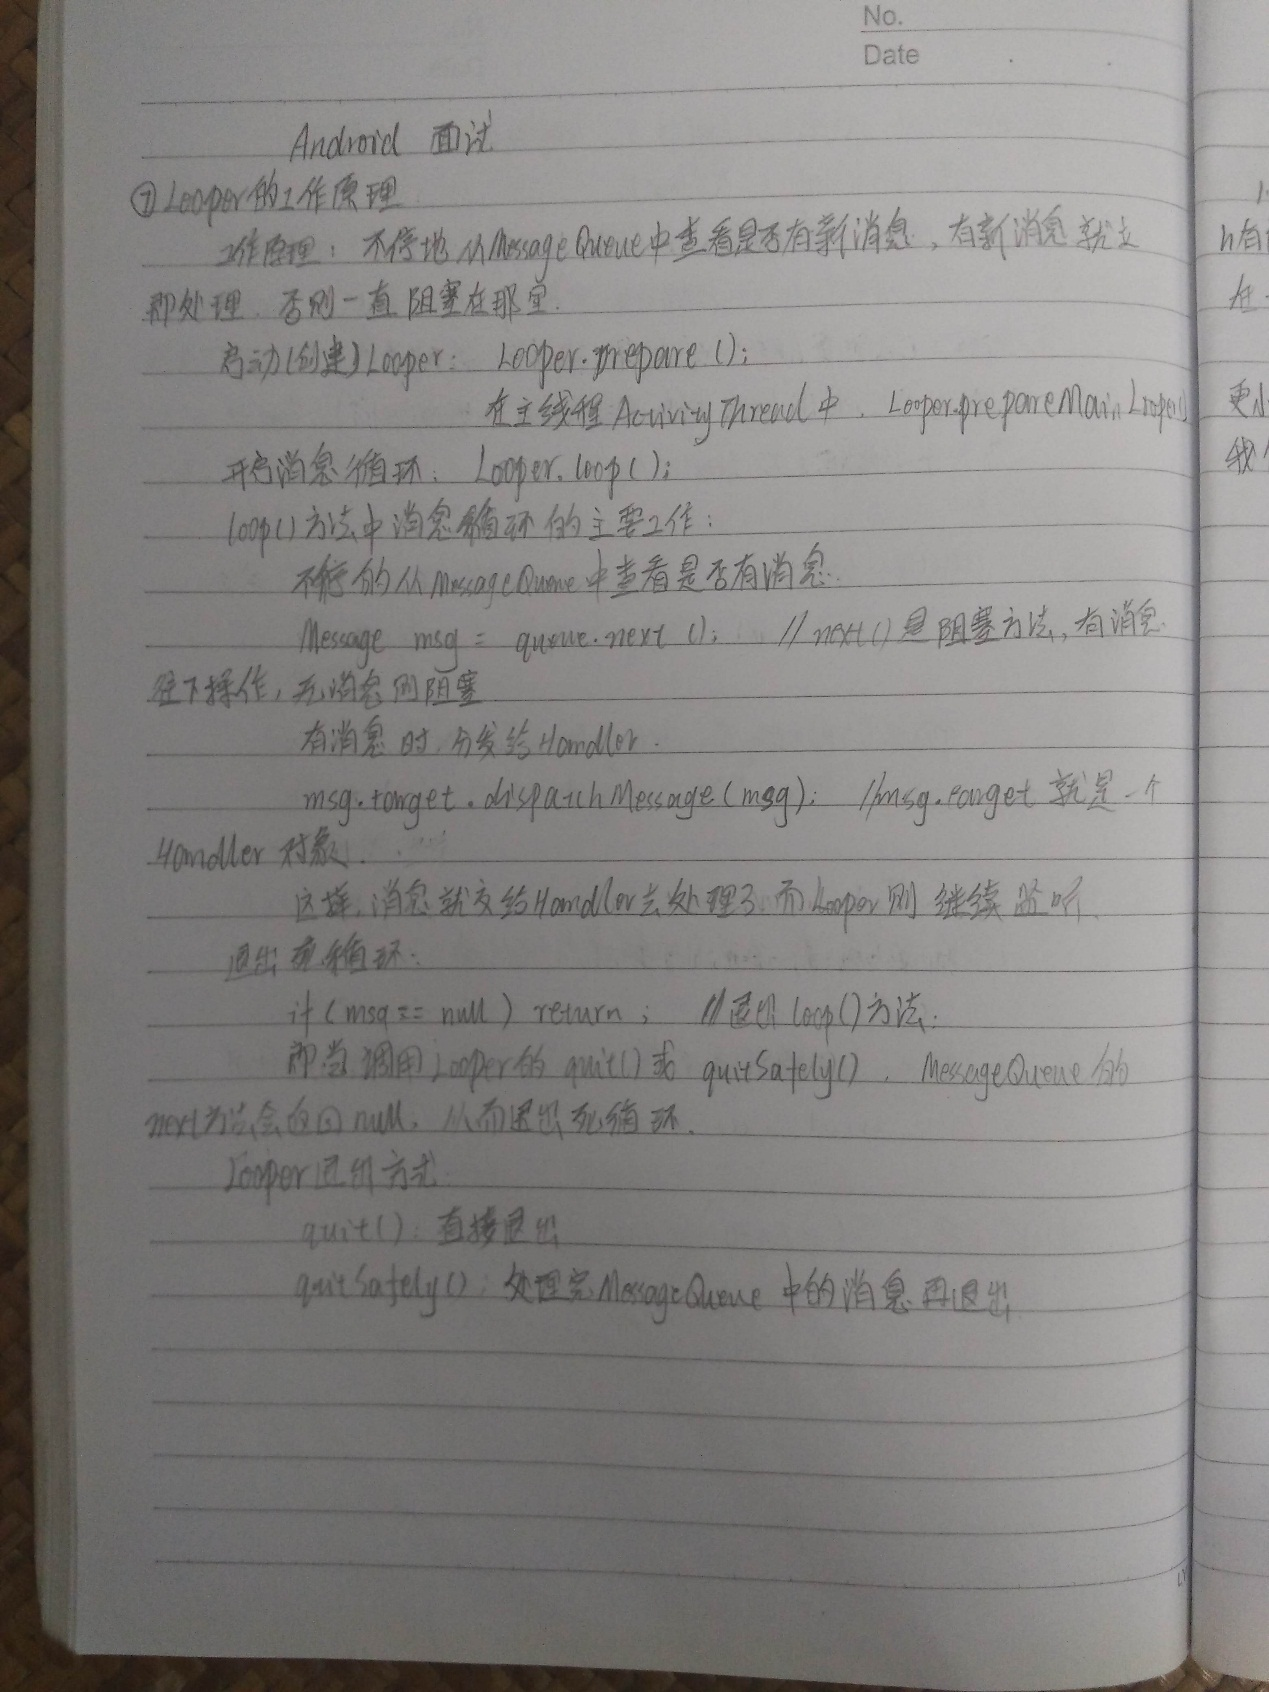 No.
Date
Android 面试
⑦Looper的工作原理
工作原理：不停地从MessageQueue中查看是否有新消息，有新消息就立
即处理，否则一直阻塞在那里.
启动(创建)Looper： Looper.prepare();
在主线程ActivityThread中，Looper.prepareMainLooper()
开启消息循环： Looper.loop();
loop()方法中消息循环的主要工作：
不停的从MessageQueue中查看是否有消息.
Message msg = queue.next(); //next()是阻塞方法，有消息
往下操作，无消息则阻塞
有消息时，分发给Handler.
msg.target.dispatchMessage(msg); //msg.target就是一个
Handler对象.
这样，消息就交给Handler去处理了，而Looper则继续监听.
退出死循环：
if(msg == null) return; //退出loop()方法.
即当调用Looper的quit()或quitSafely()，MessageQueue的
next方法会返回null，从而退出死循环.
Looper退出方式
quit()：直接退出
quitSafely()：处理完MessageQueue中的消息再退出
h有
在
更
我